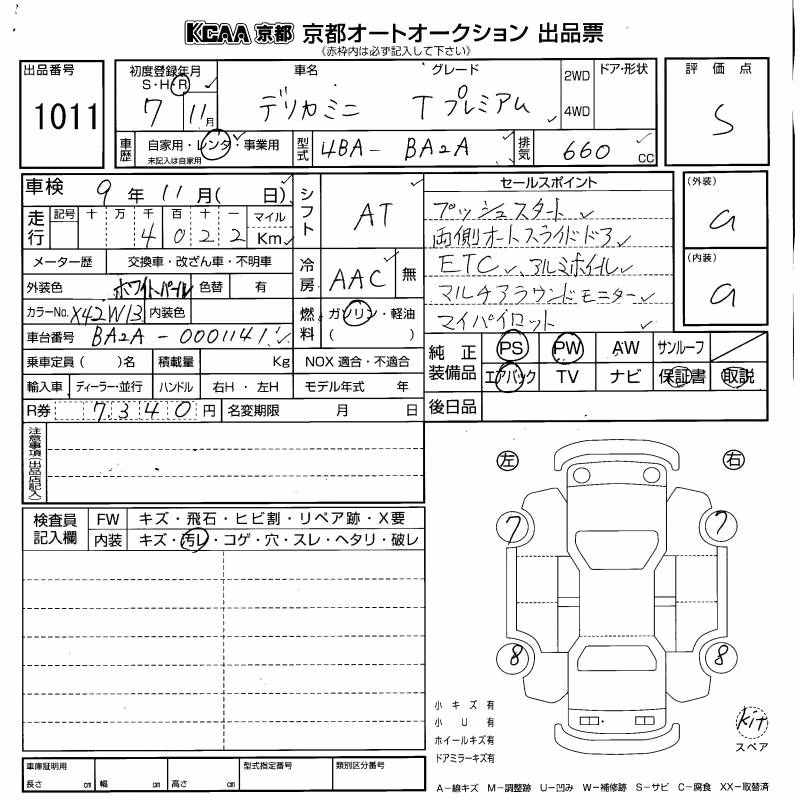 KCAA 京都 京都オートオークション 出品票
(赤枠内は必ず記入して下さい)
出品番号 1011
初度登録年月 S・H・R 7 11月
車名 デリカミニ
グレード T プレミアム
2WD 4WD
ドア・形状
評価点 S
車歴 自家用・レンタ・事業用
未記入は自家用
型式 4BA- BA2A
排気 660 CC
車検 9年 11月( 日)
走行 記号 十 万 千 百 十 一 マイル
4 0 2 2 Km
メーター歴 交換車・改ざん車・不明車
外装色 ホワイトパール 色替 有
カラーNo. X42W13 内装色
車台番号 BA2A - 0001141
乗車定員( )名 積載量 Kg NOX 適合・不適合
輸入車 ディーラー・並行 ハンドル 右H・左H モデル年式 年
R券 7340円 名変期限 月 日
シフト AT
冷房 AAC 無
燃料 ガソリン・軽油
( )
セールスポイント
プッシュスタート
両側オートスライドドア
ETC アルミホイル
マルチアラウンドモニター
マイパイロット
(外装) a
(内装) a
純正装備品 PS PW AW サンルーフ
エアバック TV ナビ 保証書 取説
後日品
注意事項(出品店記入)
検査員記入欄 FW キズ・飛石・ヒビ割・リペア跡・X要
内装 キズ・汚レ・コゲ・穴・スレ・ヘタリ・破レ
左 右
7 7
8 8
小キズ有
小U有
ホイールキズ有
ドアミラーキズ有
kit
スペア
車庫証明用 長さ cm 幅 cm 高さ cm
型式指定番号 類別区分番号
A-線キズ M-調整跡 U-凹み W-補修跡 S-サビ C-腐食 XX-取替済